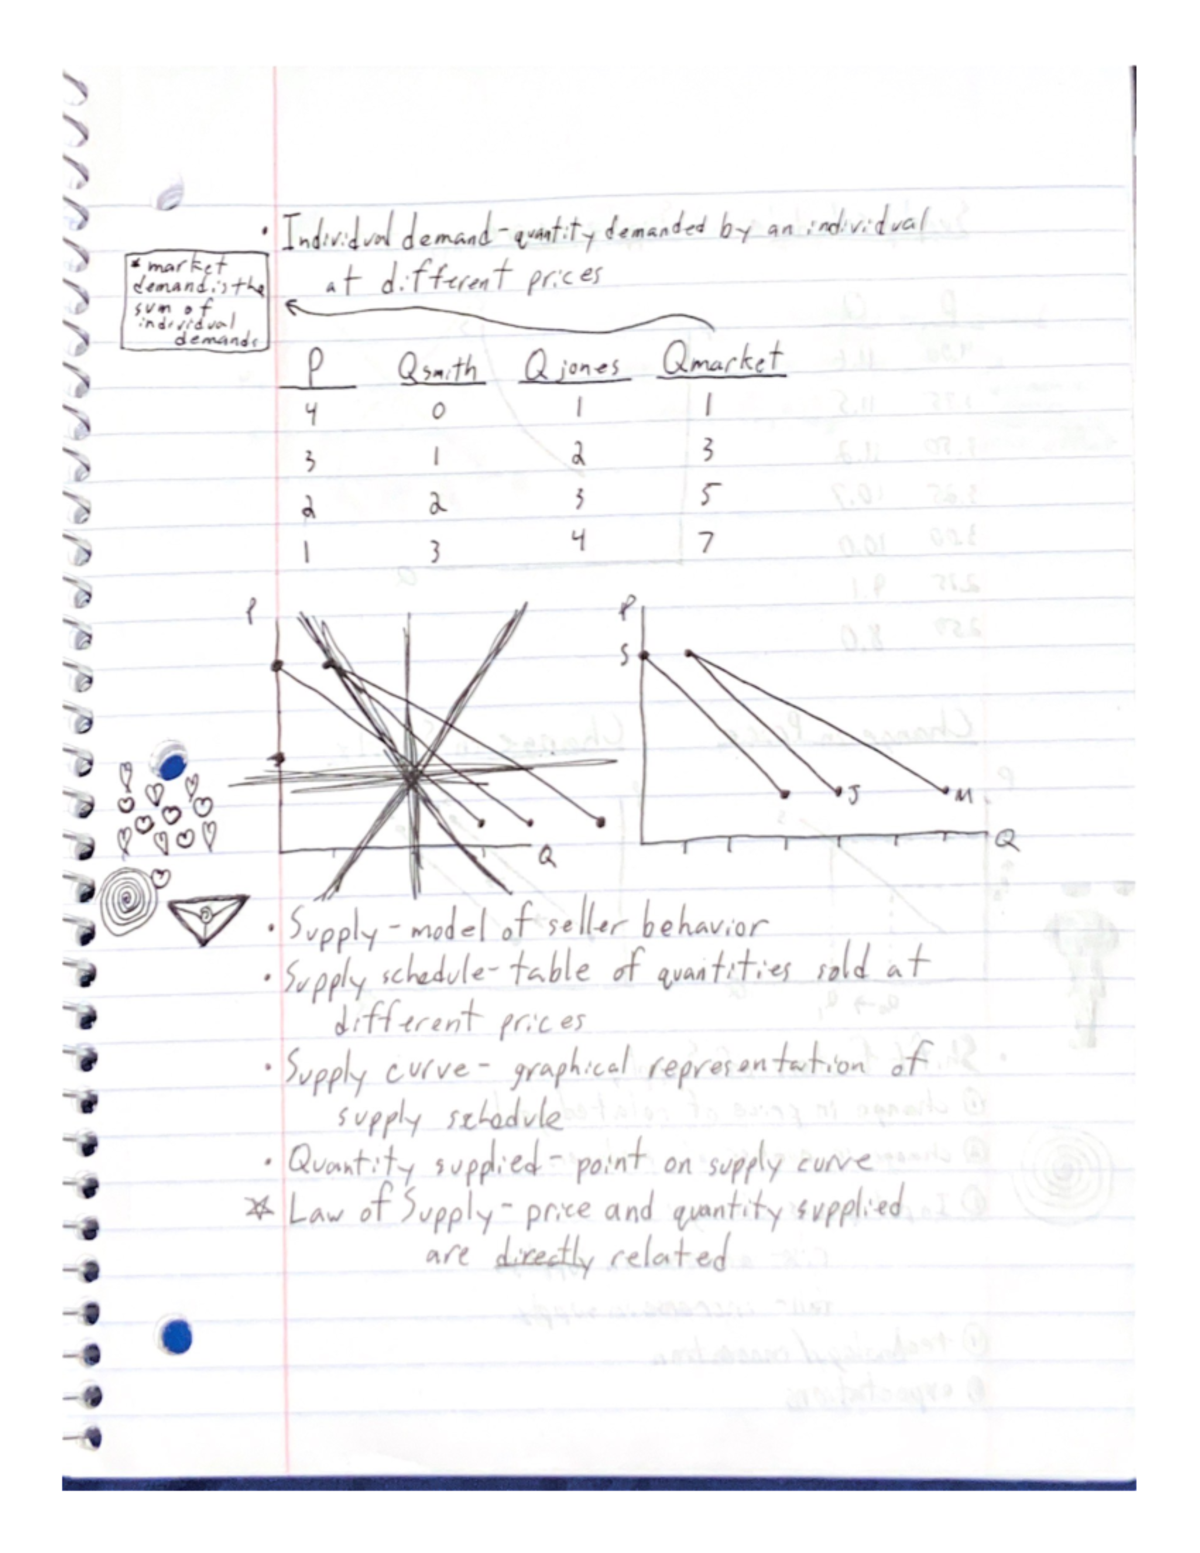 • Individual demand - quantity demanded by an individual
at different prices
* market
demand is the
sum of
individual
demands
P Qsmith Qjones Qmarket
4 0 1 1
3 1 2 3
2 2 3 5
1 3 4 7
P
Q
P
S
J
M
Q
• Supply - model of seller behavior
• Supply schedule - table of quantities sold at
different prices
• Supply curve - graphical representation of
supply schedule
• Quantity supplied - point on supply curve
☆ Law of Supply - price and quantity supplied
are directly related